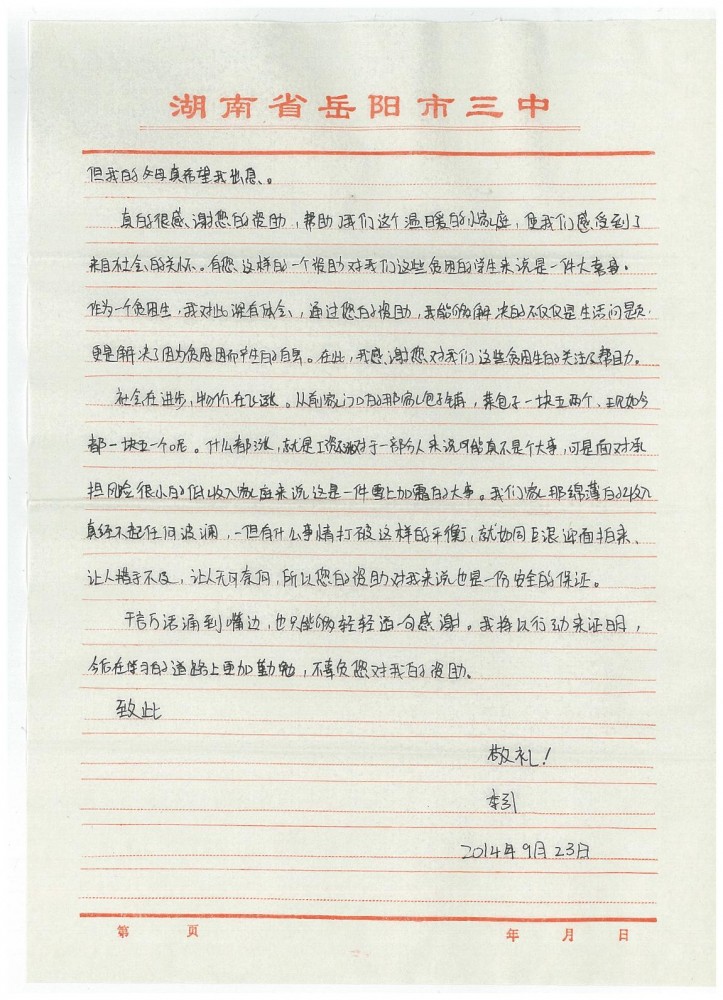 湖南省岳阳市三中
但我的父母真希望我出息。
真的很感谢您的资助，帮助我们这个温暖的小家庭，使我们感受到了
来自社会的关怀。有您这样的一个资助对我们这些贫困的学生来说是一件大喜事。
作为一个贫困生，我对此深有体会，通过您的资助，我能够解决的不仅仅是生活问题，
更是解决了因为贫困而产生的自卑。在此，我感谢您对我们这些贫困生的关注及帮助。
社会在进步，物价在飞涨。从前家门口的那家包子铺，菜包子一块五两个、现如今
都一块五一个呢。什么都涨，就是工资不涨对于一部分人来说可能真不是个大事，可是面对承
担风险很小的低收入家庭来说这是一件雪上加霜的大事。我们家那绵薄的收入
真经不起任何波澜，一但有什么事情打破这样的平衡，就如同巨浪迎面拍来、
让人措手不及，让人无可奈何，所以您的资助对我来说也是一份安全的保证。
千言万语涌到嘴边，也只能够轻轻道一句感谢。我将以行动来证明，
今后在学习的道路上更加勤勉，不辜负您对我的资助。
致此
敬礼！
2014年9月23日
第 页 年 月 日